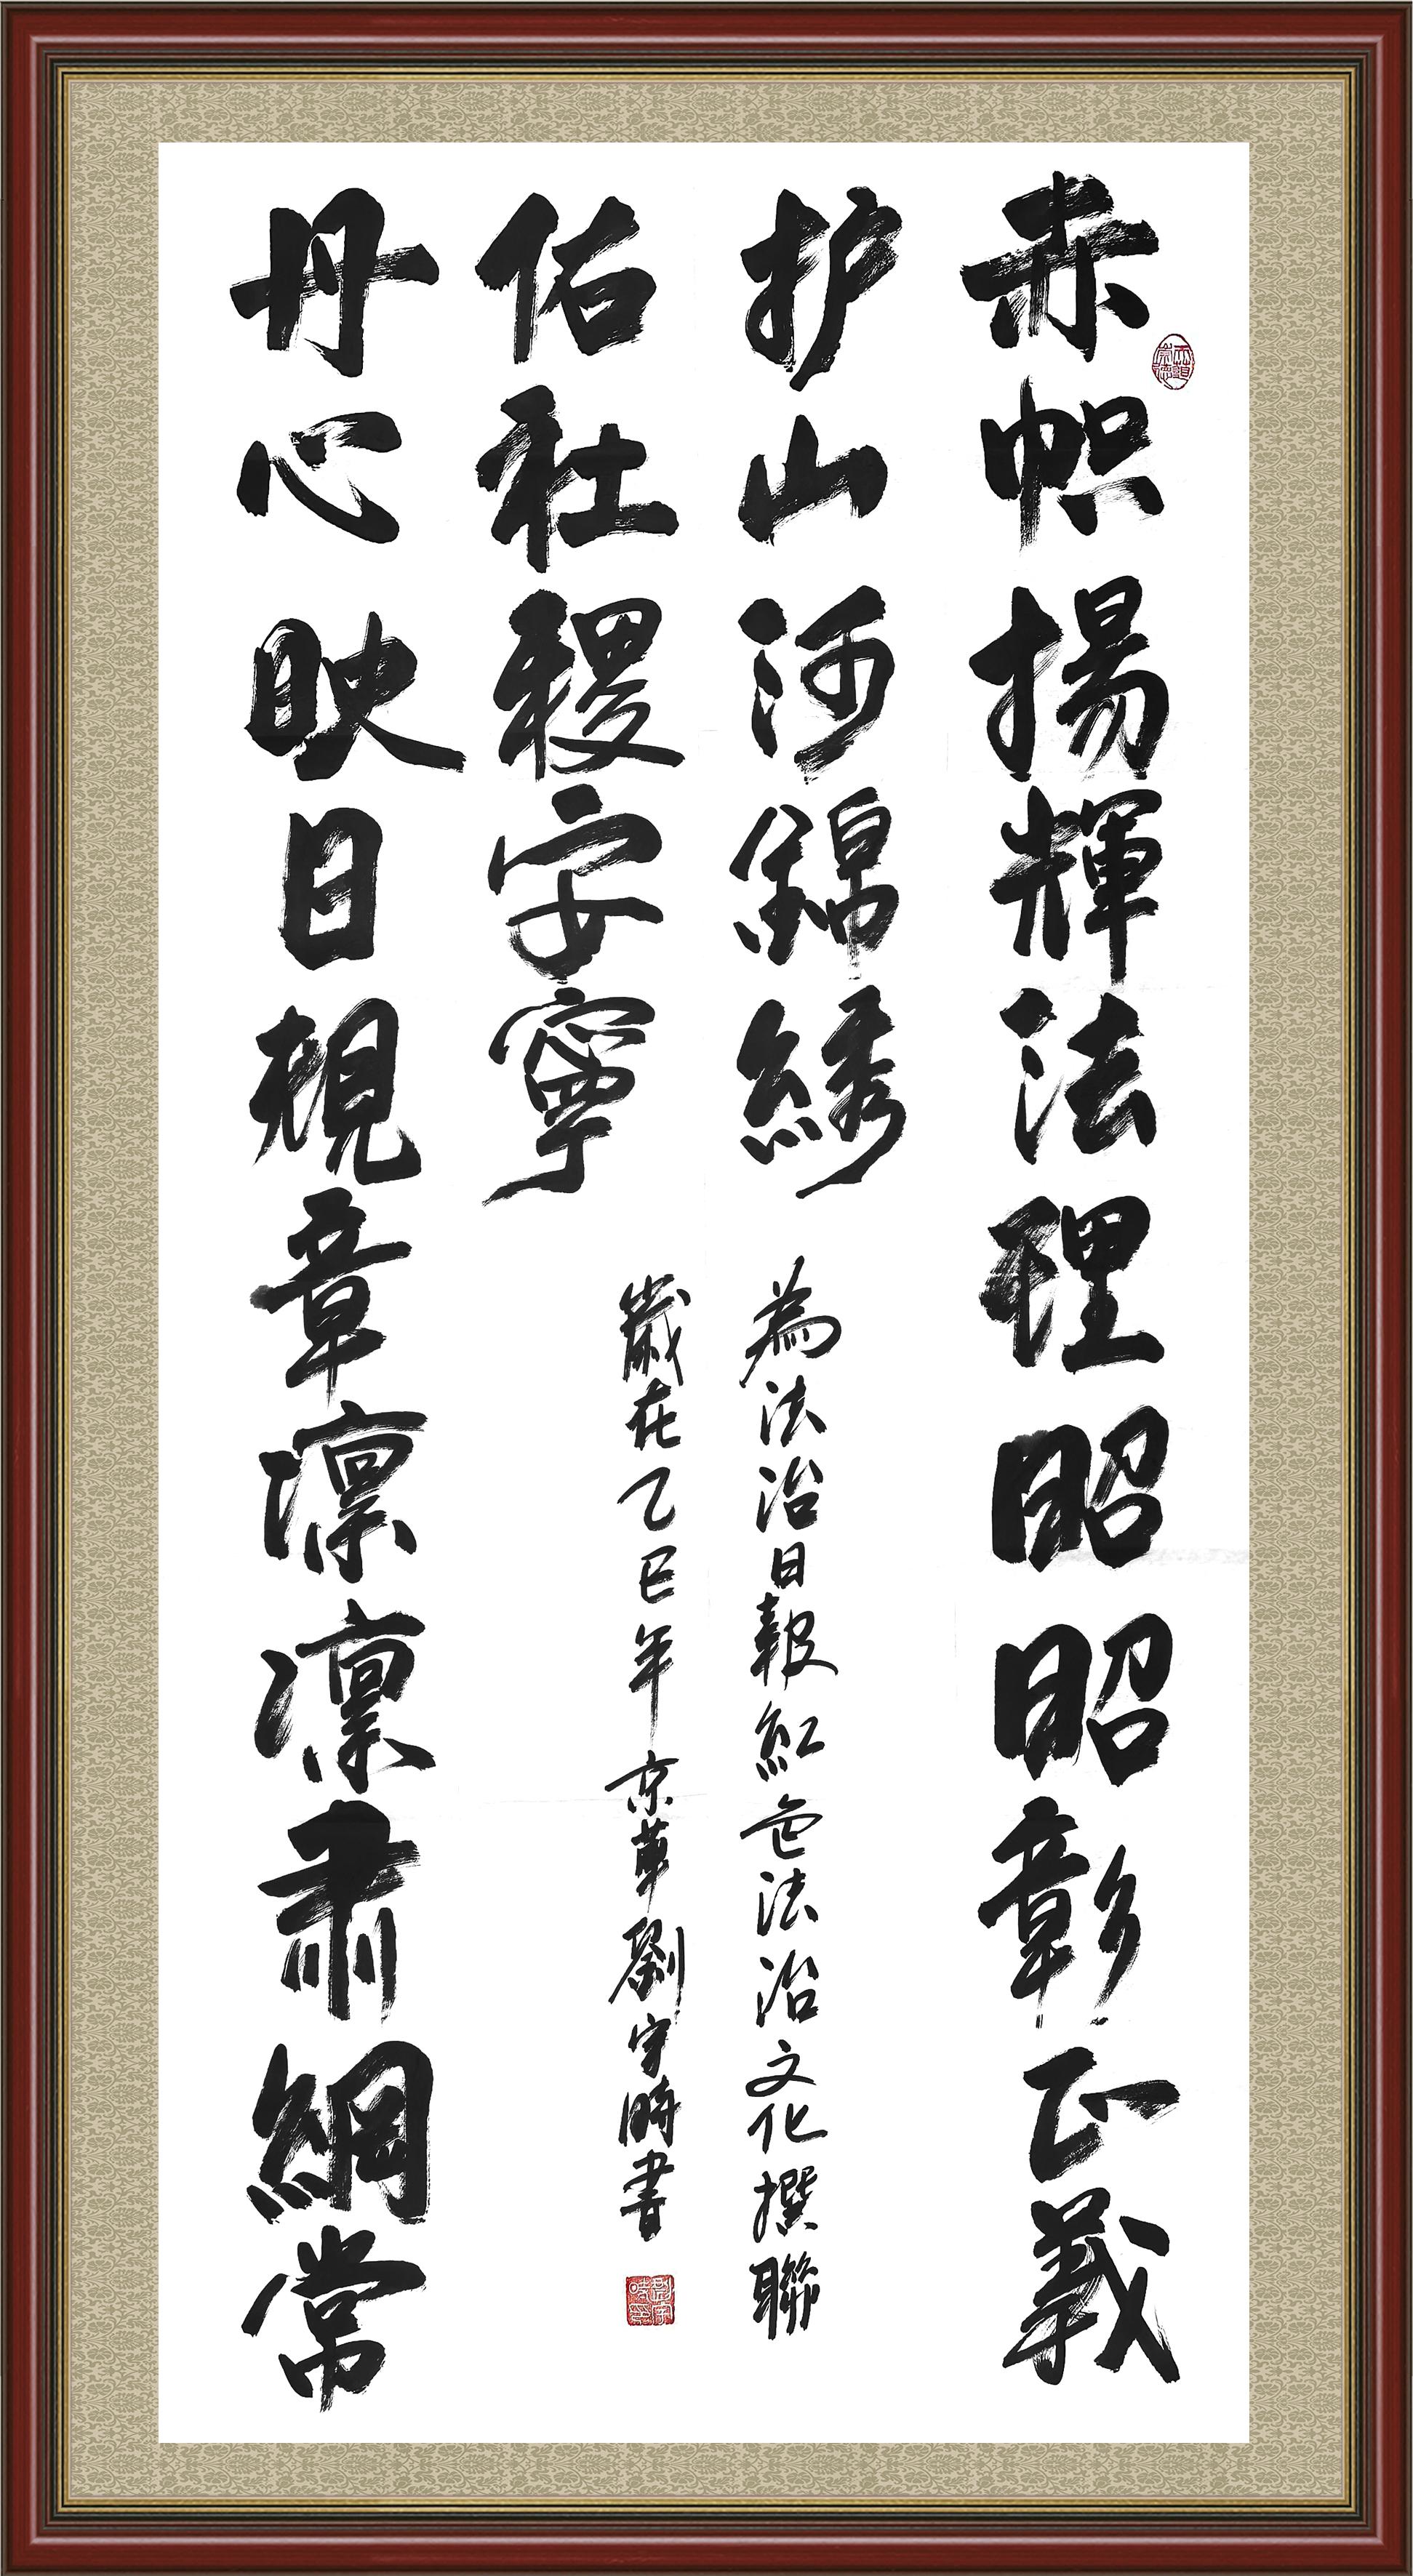 赤帜揚輝法理昭昭彰正義
护山河錦綉
丹心映日規章凛凛肃綱常
佑社稷安寧
為法治日報紅色法治文化撰聯
歲在乙巳年京華劉守時書
劉守時印